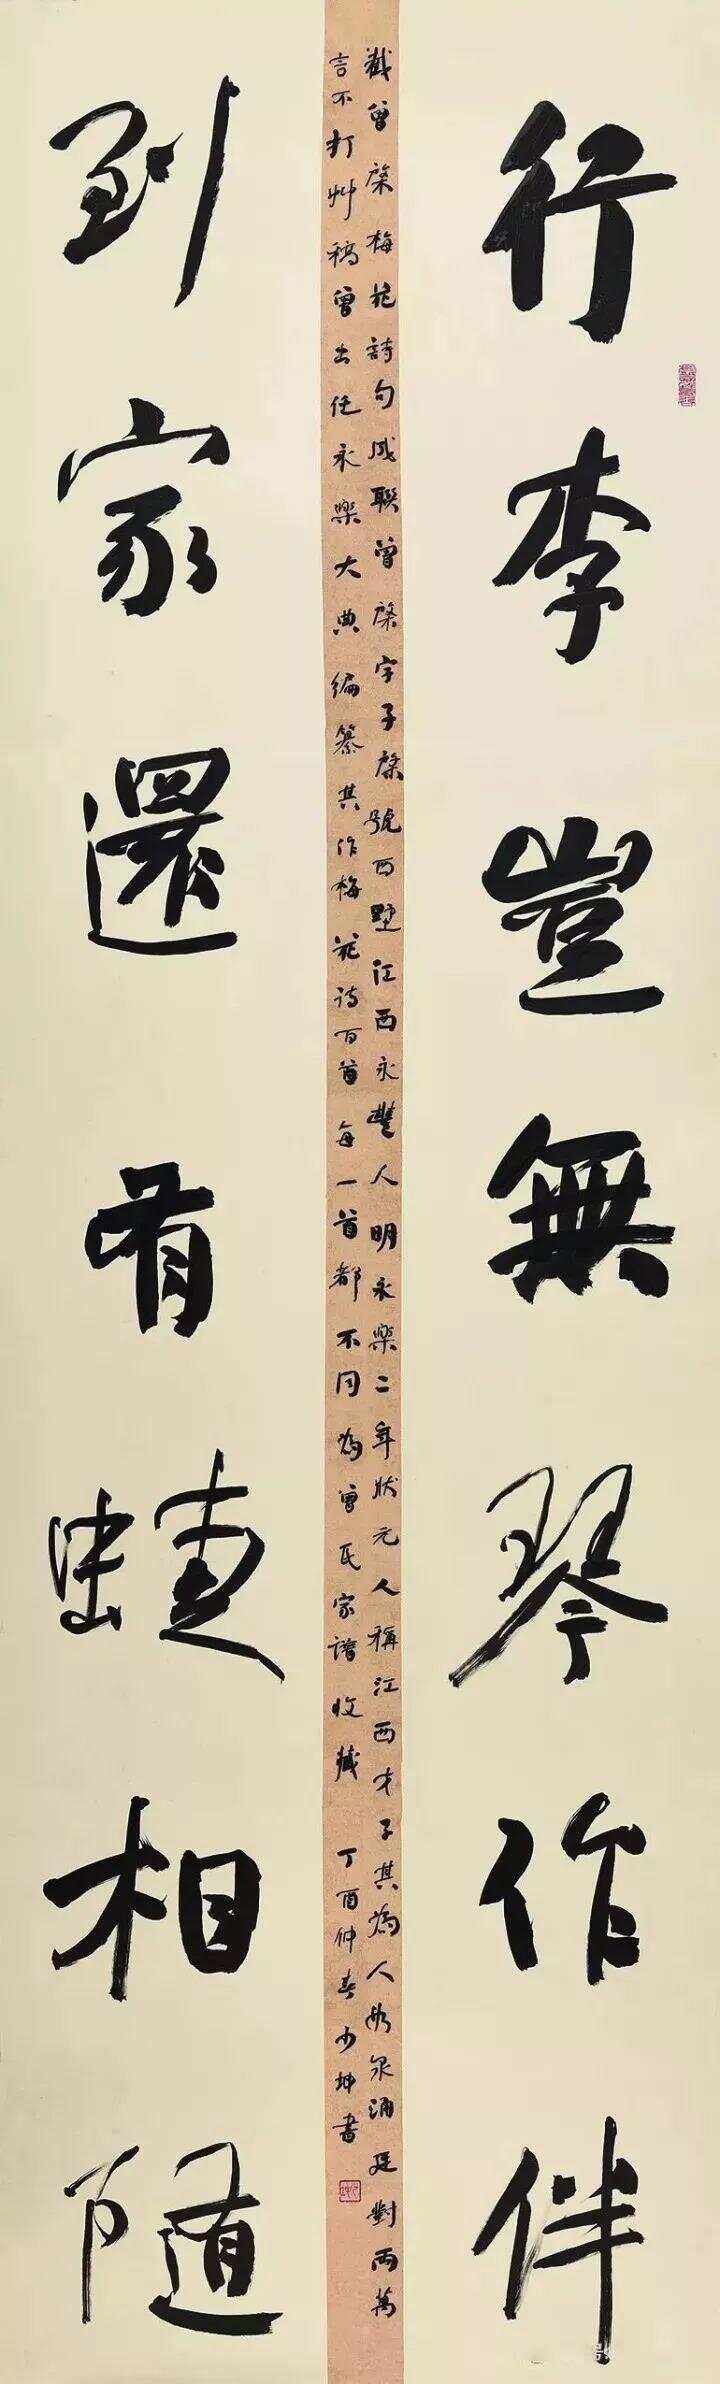 行李豈無琴作伴
到家還有蝶相隨
截曾棨梅花詩句成聯曾棨字子棨號西墅江西永豐人明永樂二年狀元人稱江西才子其為人如泉涌廷對兩萬
言不打艸稿曾出任永樂大典編纂其作梅花詩百首每一首都不同為曾氏家譜收藏 丁酉仲春少坤書